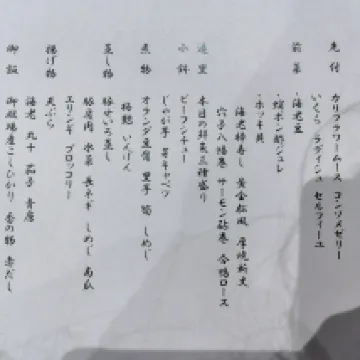 先付 カリフラワームース コンソメゼリー
いくら ラディッシュ セルフィーユ
前菜 ・海老
・蟹ポン酢ジュレ
・ホッキ貝
海老手寿し 黄金松風 厚焼
穴子八幡巻 サーモン砧巻 合鴨ロース
造里 本日の鮮魚三種盛り
小鉢 ビーフシチュー
じゃが芋 芽キャベツ
煮物 オランダ豆腐 里芋 筍 しめじ
梅麩 いんげん
蒸し物 豚せいろ蒸し
豚肩肉 水菜 長ネギ しめじ 南瓜
エリンギ ブロッコリー
揚げ物 天ぷら
海老 丸十 茄子 青唐
御飯 御殿場産こしひかり 香の物 赤だし